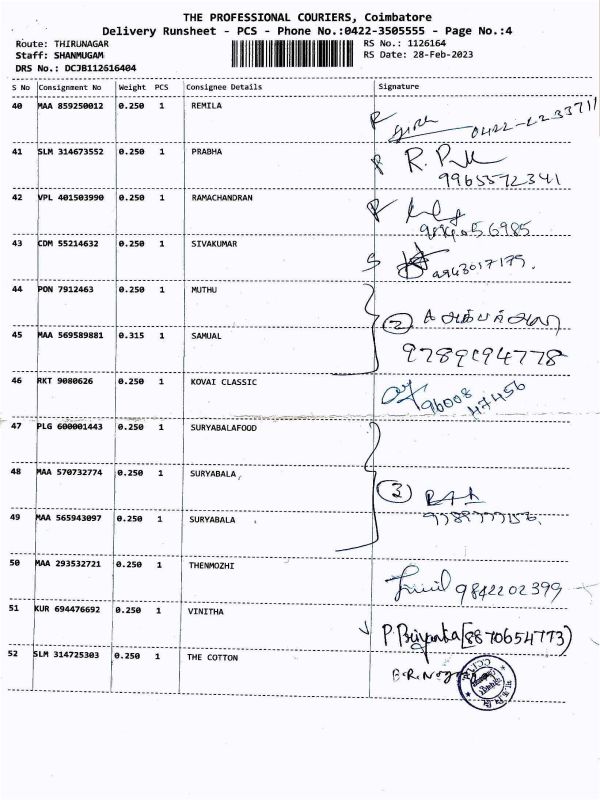 THE PROFESSIONAL COURIERS, Coimbatore
Delivery Runsheet - PCS - Phone No.:0422-3505555 - Page No.:4
Route: THIRUNAGAR RS No.: 1126164
Staff: SHANMUGAM RS Date: 28-Feb-2023
DRS No.: DCJB112616404
S No Consignment No Weight PCS Consignee Details Signature
40 MAA 859250012 0.250 1 REMILA
41 SLM 314673552 0.250 1 PRABHA R.
9965572341
42 VPL 401503990 0.250 1 RAMACHANDRAN
43 CDM 55214632 0.250 1 SIVAKUMAR S
9943017179.
44 PON 7912463 0.250 1 MUTHU
2
45 MAA 569589881 0.315 1 SAMUAL
9789194778
46 RKT 9080626 0.250 1 KOVAI CLASSIC
96008
47456
47 PLG 600001443 0.250 1 SURYABALAFOOD
48 MAA 570732774 0.250 1 SURYABALA,
3
49 MAA 565943097 0.250 1 SURYABALA
50 MAA 293532721 0.250 1 THENMOZHI
9842202399
51 KUR 694476692 0.250 1 VINITHA
P. Priyanka (8870654773)
52 SLM 314725303 0.250 1 THE COTTON